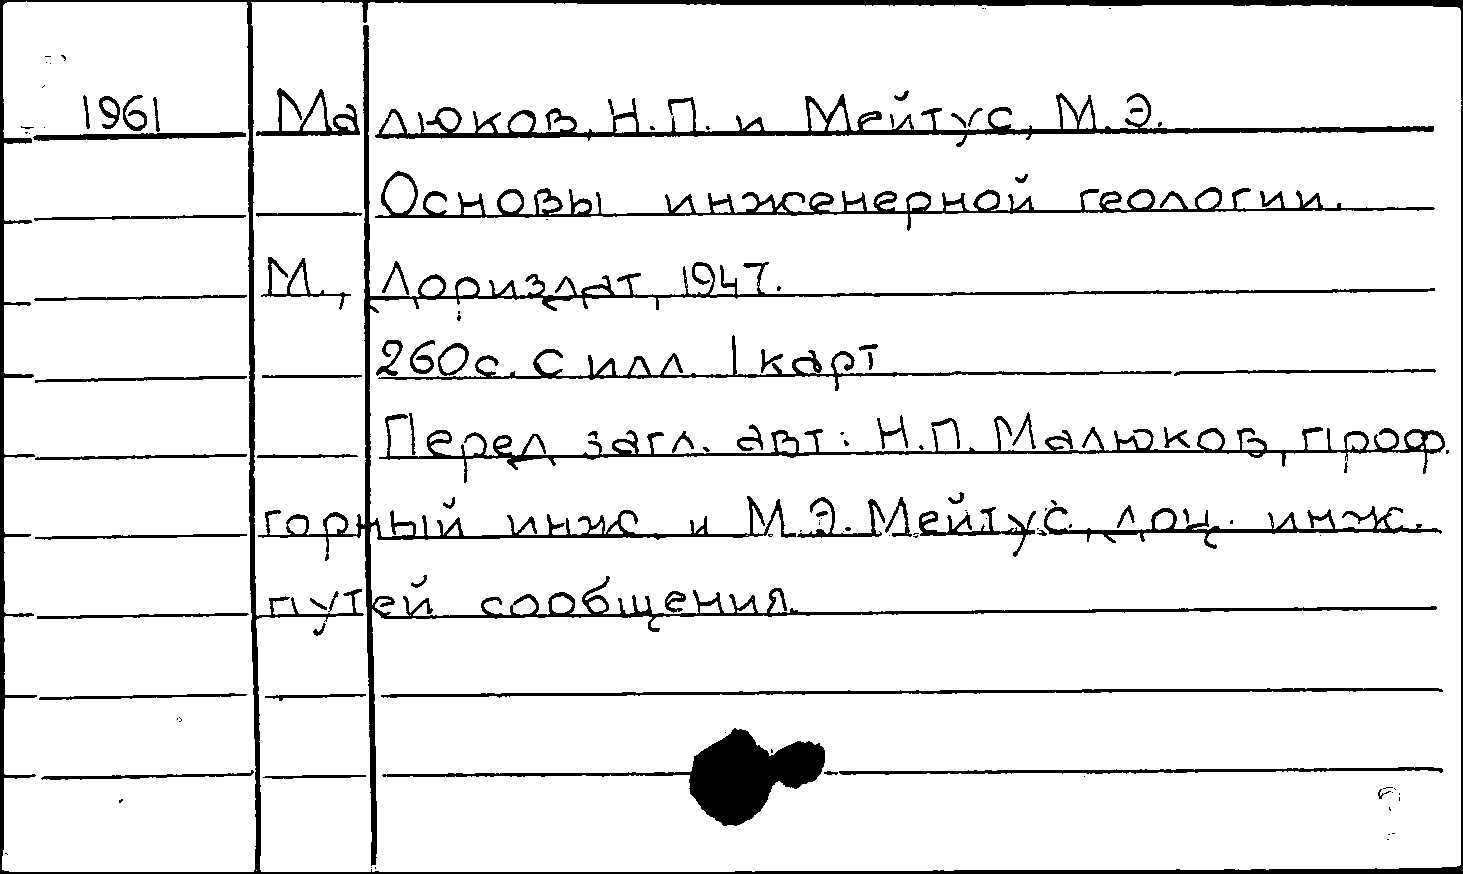 1961 Малюков, Н.П. и Мейтус, М.Э.
Основы инженерной геологии.
М., Дориздат, 1947.
260с. с илл. 1 карт
Перед загл. авт: Н.П. Малюков, проф.
горный инж. и М.Э. Мейтус, доц. инж.
путей сообщения.